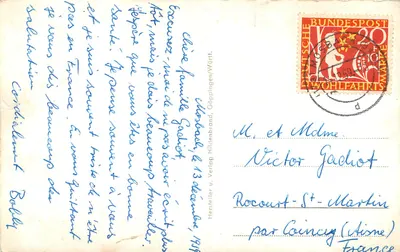 Morbach, le 13 décembre, 1959
Chère famille Gadiot,
Excusez-moi de ne pas avoir écrit plus
tôt, mais je dois beaucoup travailler.
J'espère que vous êtes en bonne
santé. Je pense souvent à vous
et je suis souvent triste de n'être
pas en France. En vous quittant
je vous dis beaucoup de
salutations
Cordialement Bobby
DEUTSCHE
BUNDESPOST
20
+10
WOHLFAHRTS
MARKE
M. et Mdme.
Victor Gadiot
Rocourt-St-Martin
par Coincy (Aisne)
France